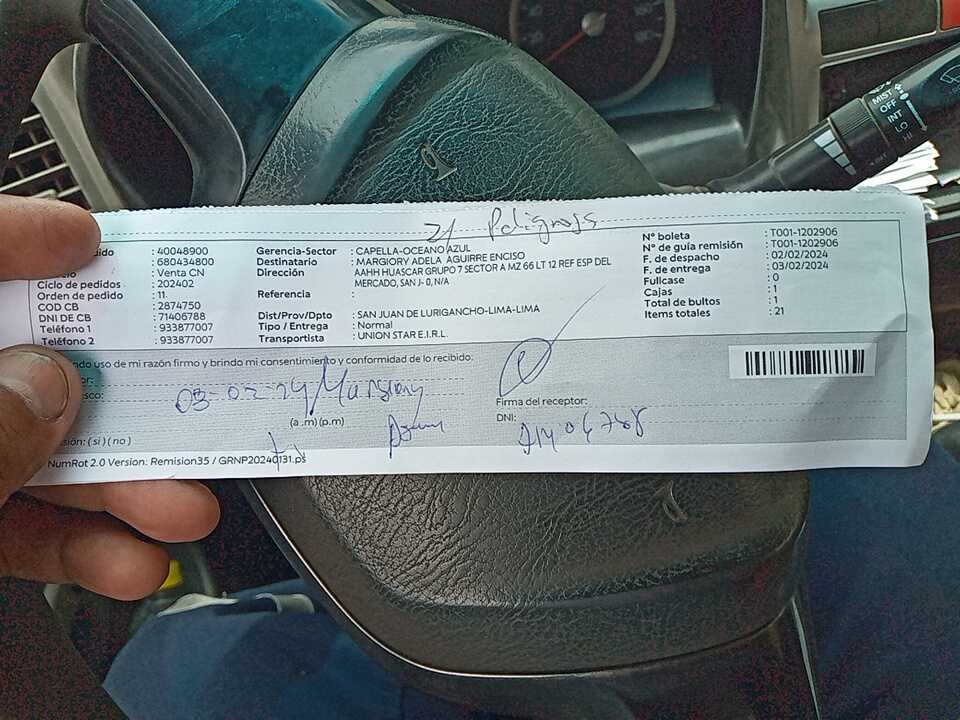 MIST
OFF
INT
LO
HI
21 Peligrosos
dido : 40048900
: 680434800
cio : Venta CN
Ciclo de pedidos : 202402
Orden de pedido : 11
COD CB : 2874750
DNI DE CB : 71406788
Teléfono 1 : 933877007
Teléfono 2 : 933877007
Gerencia-Sector : CAPELLA-OCEANO AZUL
Destinatario : MARGIORY ADELA AGUIRRE ENCISO
Dirección : AAHH HUASCAR GRUPO 7 SECTOR A MZ 66 LT 12 REF ESP DEL
MERCADO, SAN J- 0, N/A
Referencia :
Dist/Prov/Dpto : SAN JUAN DE LURIGANCHO-LIMA-LIMA
Tipo / Entrega : Normal
Transportista : UNION STAR E.I.R.L.
N° boleta : T001-1202906
N° de guía remisión : T001-1202906
F. de despacho : 02/02/2024
F. de entrega : 03/02/2024
Fullcase : 0
Cajas : 1
Total de bultos : 1
Items totales : 21
ndo uso de mi razón firmo y brindo mi consentimiento y conformidad de lo recibido.
or:
esco:
03-02-24 Margiory
(a.m) (p.m)
Firma del receptor:
DNI:
sión: ( si ) ( no )
NumRot 2.0 Version: Remision35 / GRNP20240131.ps